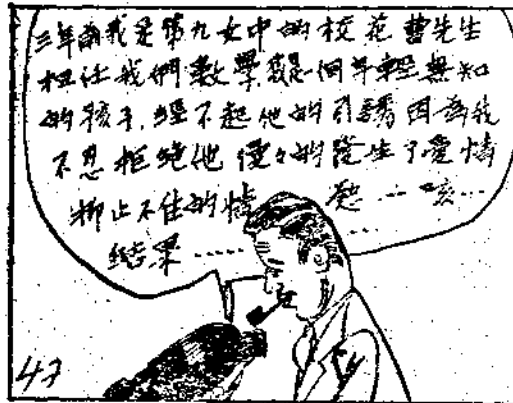 三年前我是第九女中的校花曹先生
担任我們數學，是個年輕無知
的孩子，經不起他的引誘因為我
不忍拒絕他慢々的發生了愛情
抑止不住的情慾……咳…
結果……
47